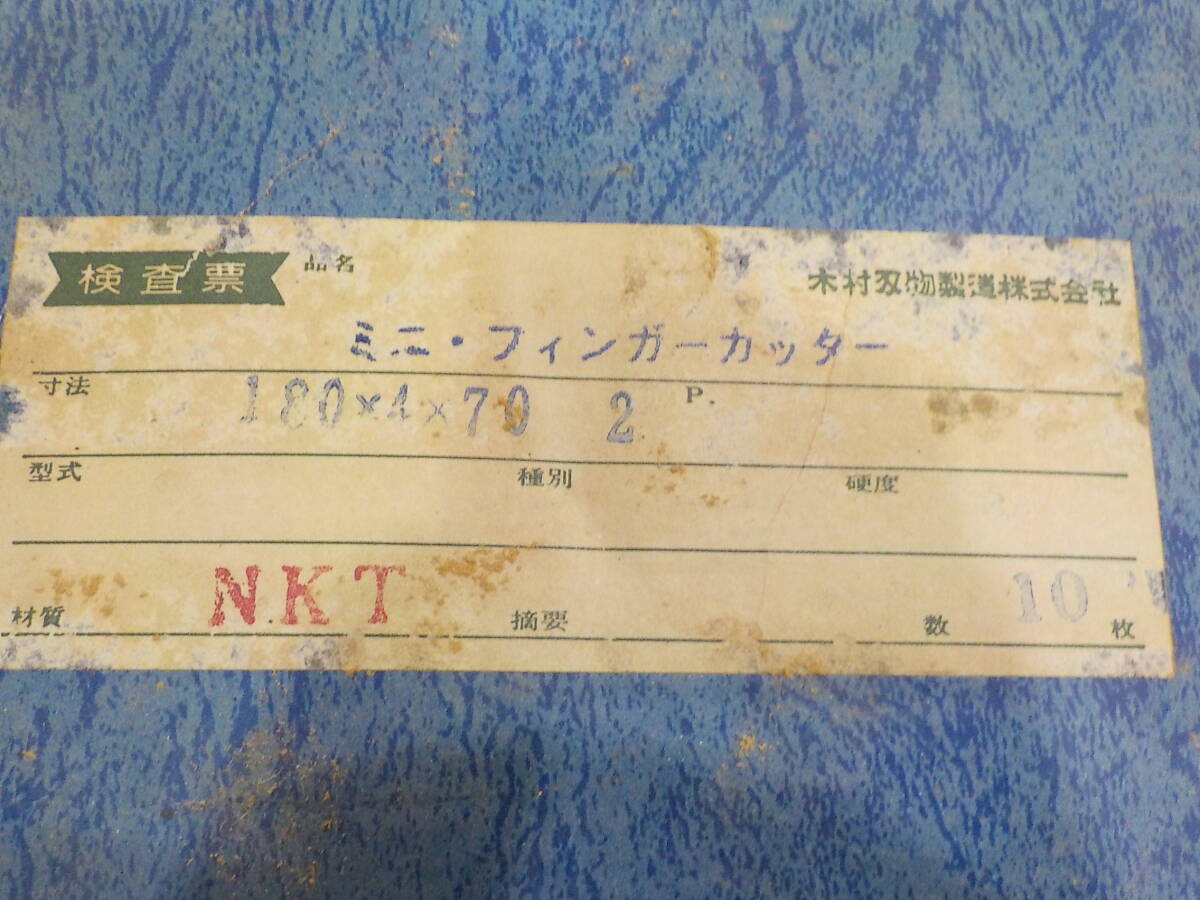 検査票 品名 木村刃物製造株式会社
ミニ・フィンガーカッター
寸法 180×4×70 2 P.
型式 種別 硬度
材質 NKT 摘要 数 10 枚